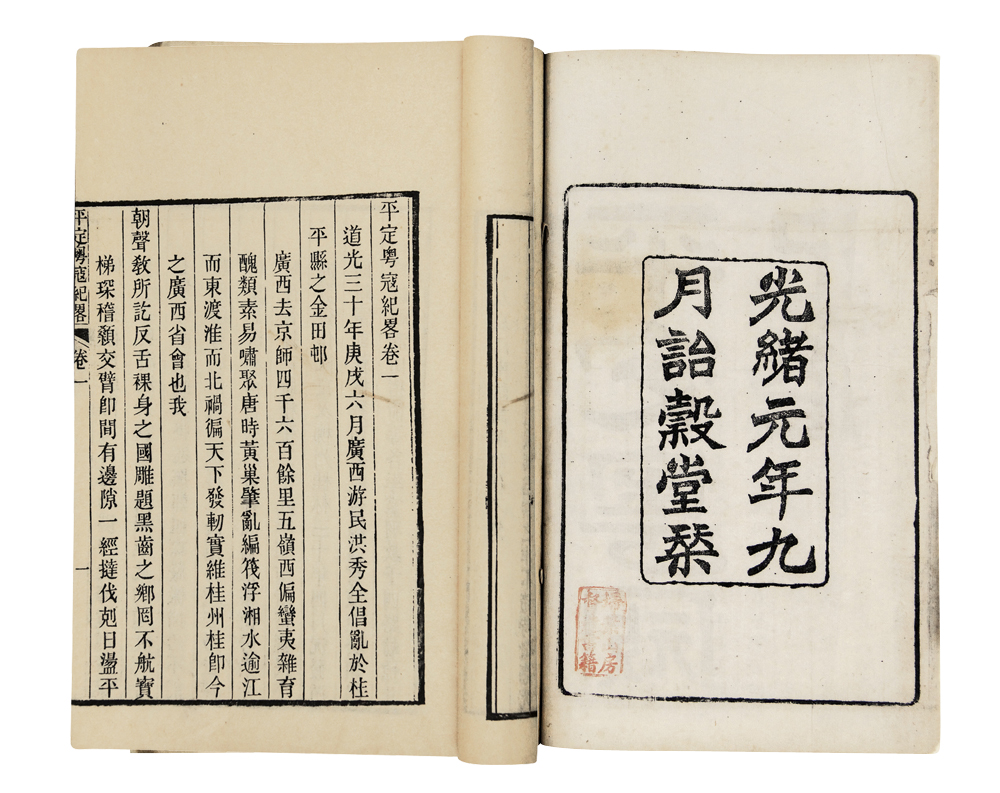 光緒元年九
月詒穀堂琹
平定粵寇紀畧卷一
道光三十年庚戌六月廣西游民洪秀全倡亂於桂
平縣之金田邨
廣西去京師四千六百餘里五嶺西偏蠻夷雜育
醜類素易嘯聚唐時黃巢肇亂編筏浮湘水逾江
而東渡淮而北禍徧天下發軔實維桂州桂卽今
之廣西省會也我
朝聲敎所訖反舌裸身之國雕題黑齒之鄉罔不航寶
梯琛稽顙交臂卽間有邊隙一經撻伐剋日盪平
平定粵寇紀畧 卷一 一